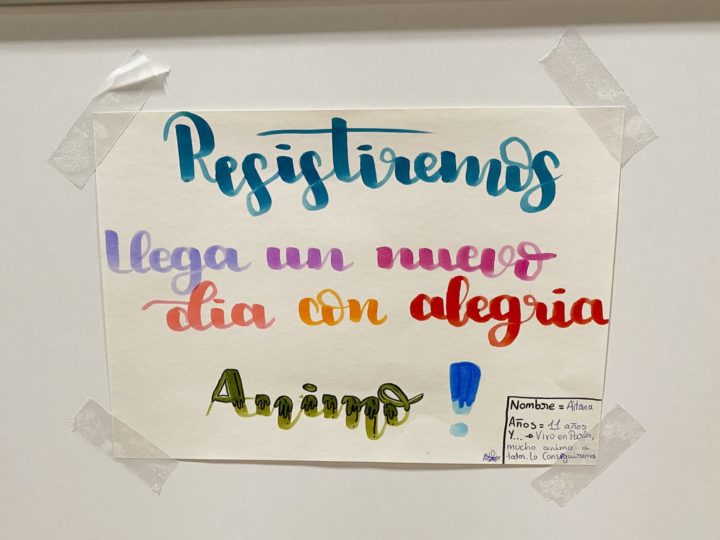 Resistiremos
Llega un nuevo
dia con alegria
Animo !
Nombre = Aitana
Años = 11 años
Y... → Vivo en Parla,
mucho animo a
todos. Lo Conseguiremos